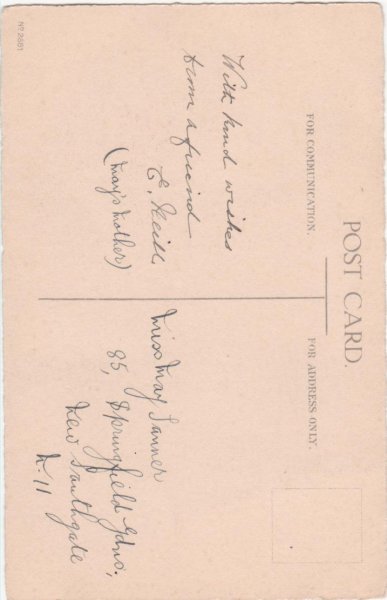 POST CARD.
FOR COMMUNICATION.
With kind wishes
from a friend
E.
(May's Mother)
Nº 2551
FOR ADDRESS ONLY.
Miss May
85, Springfield Gdns.,
New Southgate
N. 11